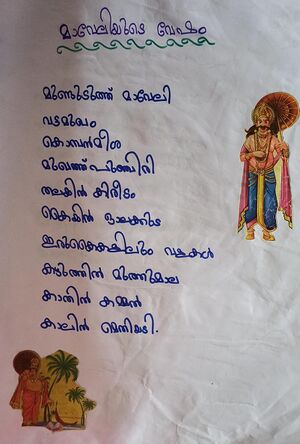 മാവേലിയുടെ വേഷം
മുണ്ടുടുത്ത് മാവേലി
വട്ടമുഖം
കൊമ്പൻമീശ
മുഖത്ത് പുഞ്ചിരി
തലയിൽ കിരീടം
കൈയിൽ ഓലക്കുട
ഇരുകൈകളിലും വളകൾ
കഴുത്തിൽ മുത്തുമാല
കാതിൽ കമ്മൽ
കാലിൽ മെതിയടി.